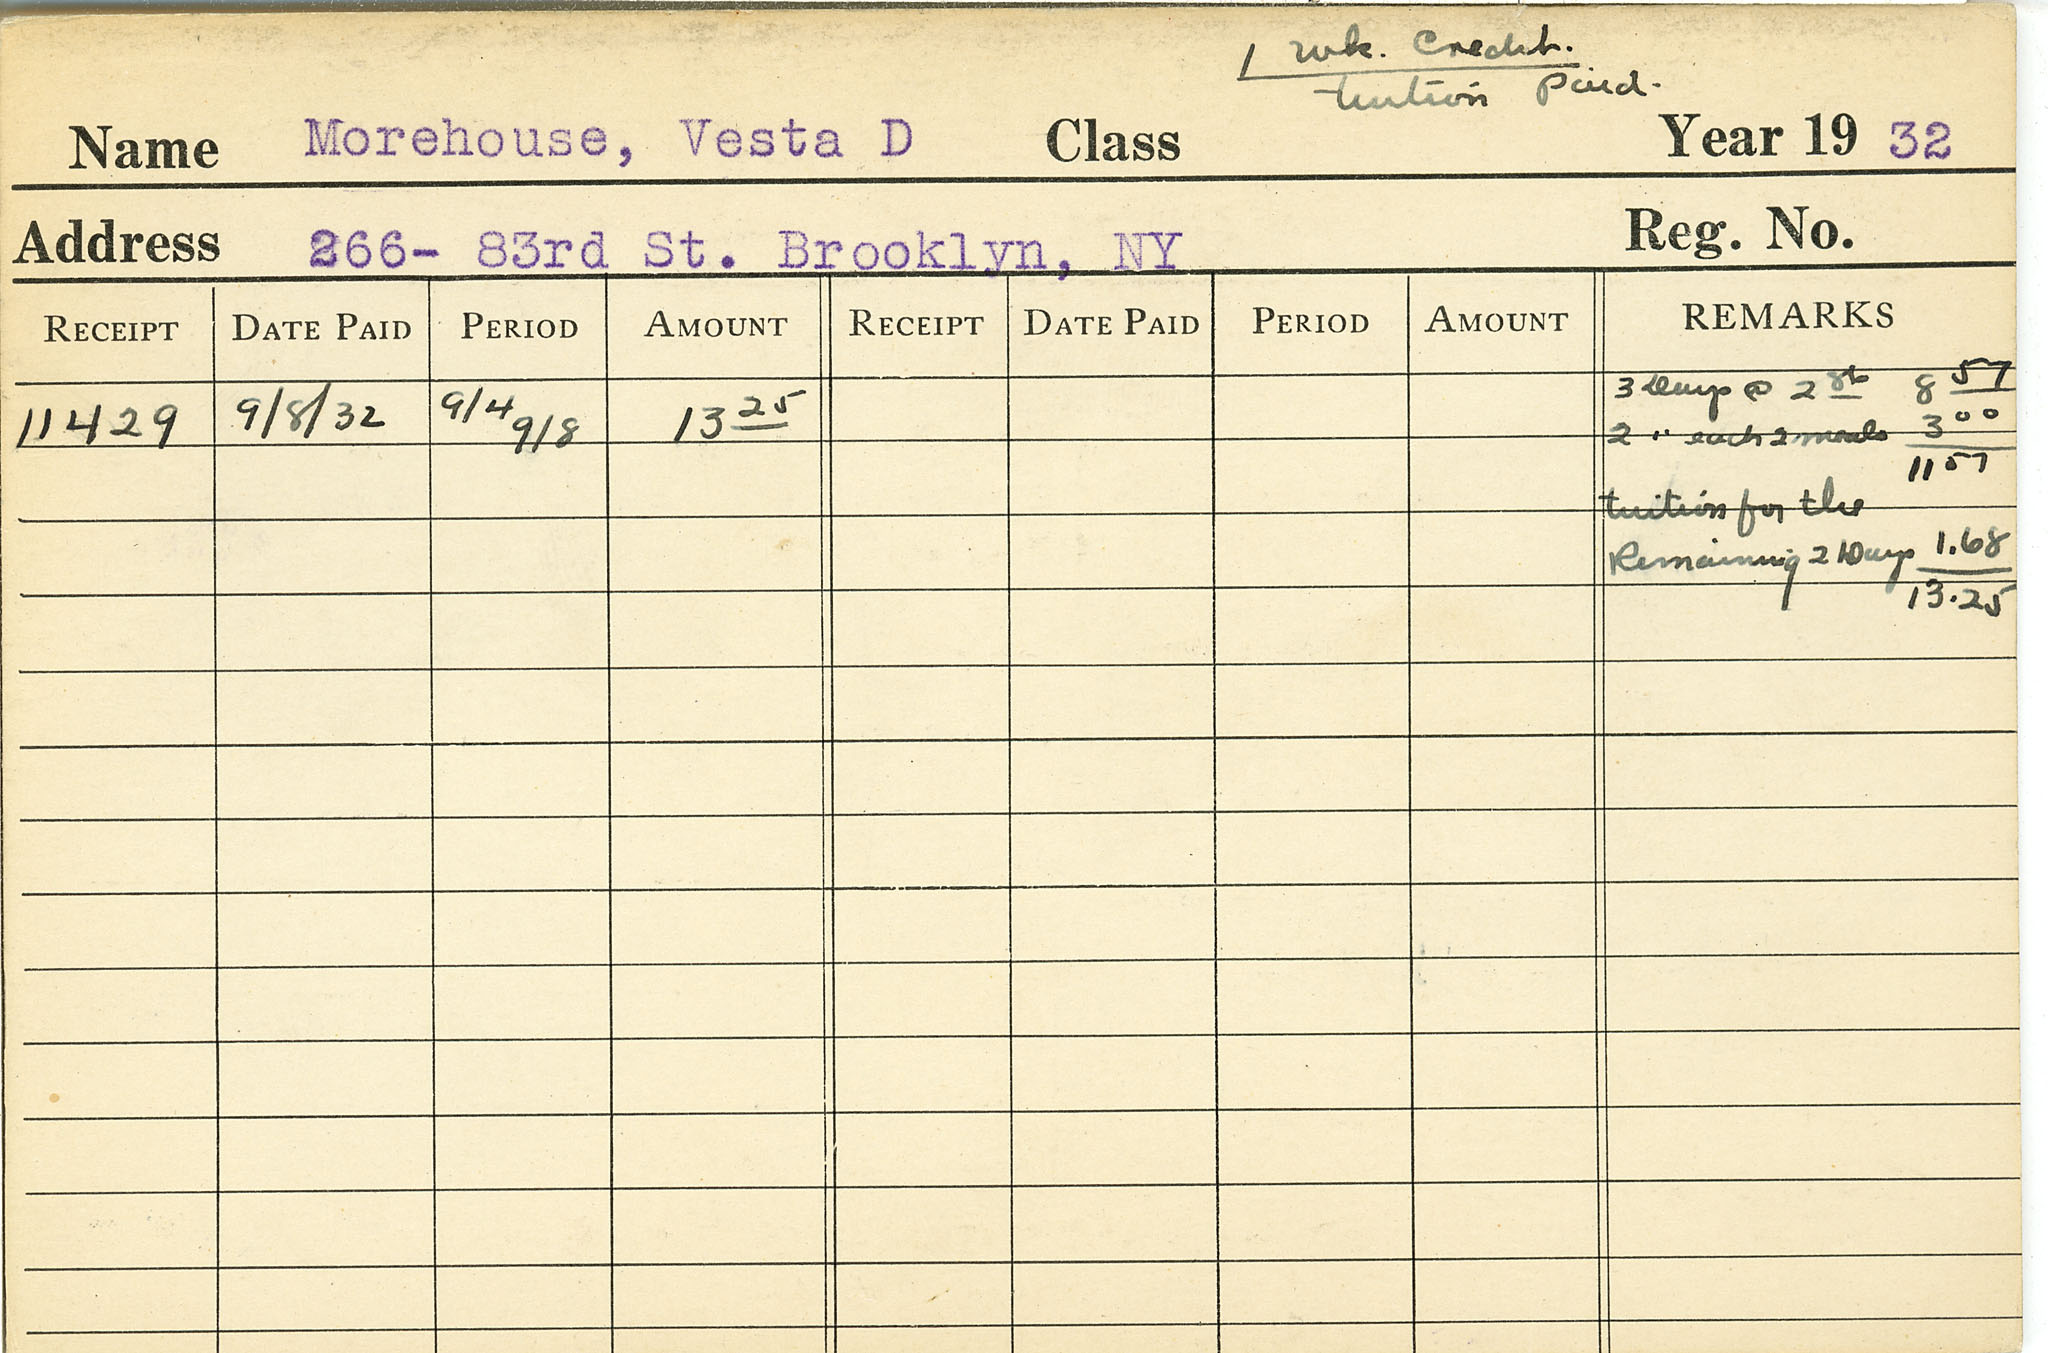 1 wk. Credit.
tuition paid.
Name Morehouse, Vesta D Class Year 19 32
Address 266- 83rd St. Brooklyn, NY Reg. No.
RECEIPT DATE PAID PERIOD AMOUNT RECEIPT DATE PAID PERIOD AMOUNT REMARKS
11429 9/8/32 9/4 9/8 13 25
3 Days @ 2 8 57
2 " each 2 meals 3 00
11 57
tuition for the
Remaining 2 Days 1.68
13.25